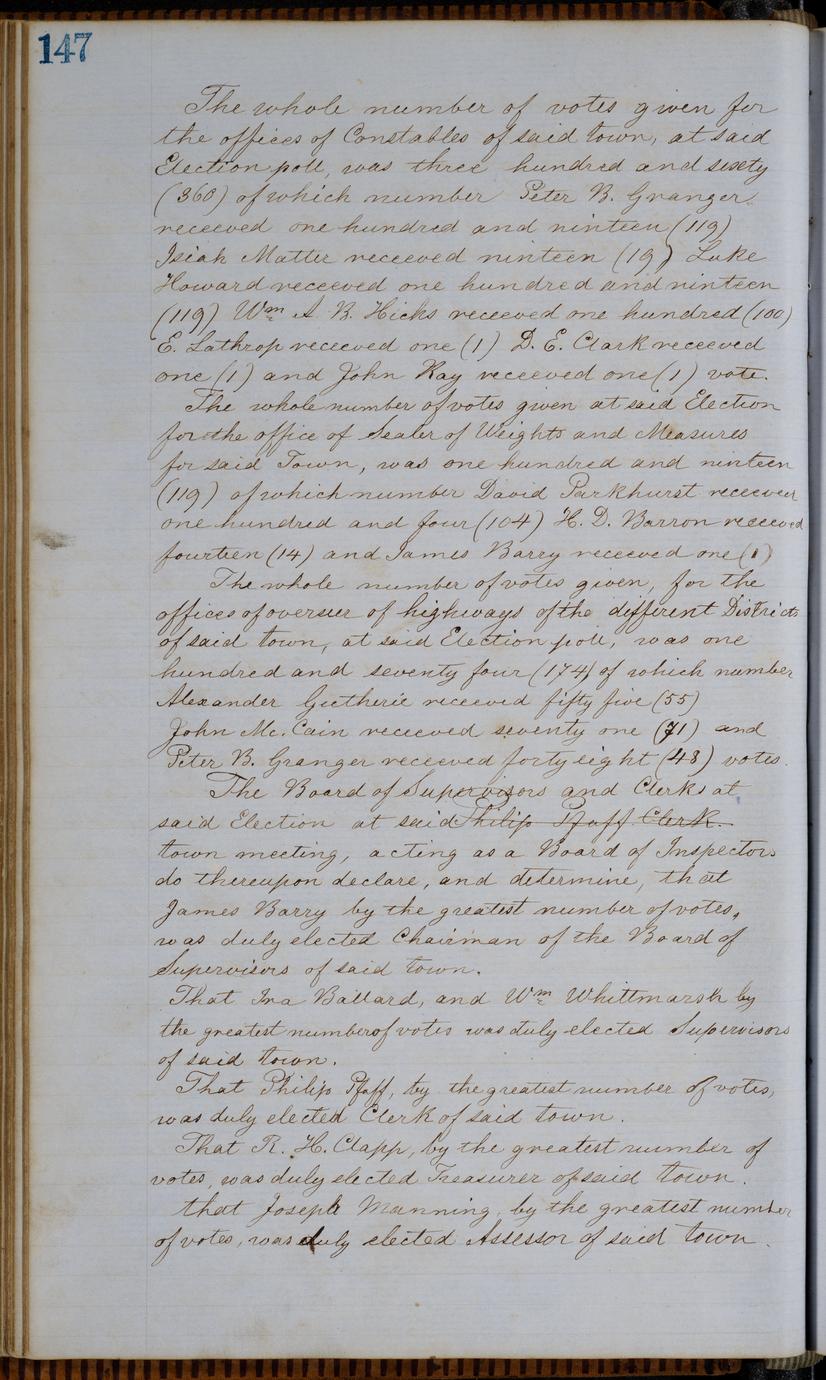 147
The whole number of votes given for
the offices of Constables of said town, at said
Election poll, was three hundred and sixty
(360) of which number Peter B. Granger
received one hundred and ninteen (119)
Isiah Matter received ninteen (19) Luke
Howard received one hundred and ninteen
(119) Wm A. B. Hicks received one hundred (100)
E. Lathrop received one (1) D. E. Clark received
one (1) and John Kay received one (1) vote.
The whole number of votes given at said Election
for the office of Sealer of Weights and Measures
for said Town, was one hundred and ninteen
(119) of which number David Parkhurst received
one hundred and four (104) H. D. Barron received
fourteen (14) and James Barry received one (1)
The whole number of votes given, for the
offices of overseer of highways of the different Districts
of said town, at said Election poll, was one
hundred and seventy four (174) of which number
Alexander Gutherie received fifty five (55)
John Mc. Cain received seventy one (71) and
Peter B. Granger received forty eight (48) votes.
The Board of Supervisors and Clerks at
said Election at said Philip Pfaff Clerk.
town meeting, acting as a Board of Inspectors
do thereupon declare, and determine, that
James Barry by the greatest number of votes,
was duly elected Chairman of the Board of
Supervisors of said town.
That Ira Ballard, and Wm Whittmarsh by
the greatest number of votes was duly elected Supervisors
of said town.
That Philip Pfaff, by the greatest number of votes,
was duly elected Clerk of said town.
That R. H. Clapp, by the greatest number of
votes, was duly elected Treasurer of said town.
that Joseph Manning, by the greatest number
of votes, was duly elected Assessor of said town.